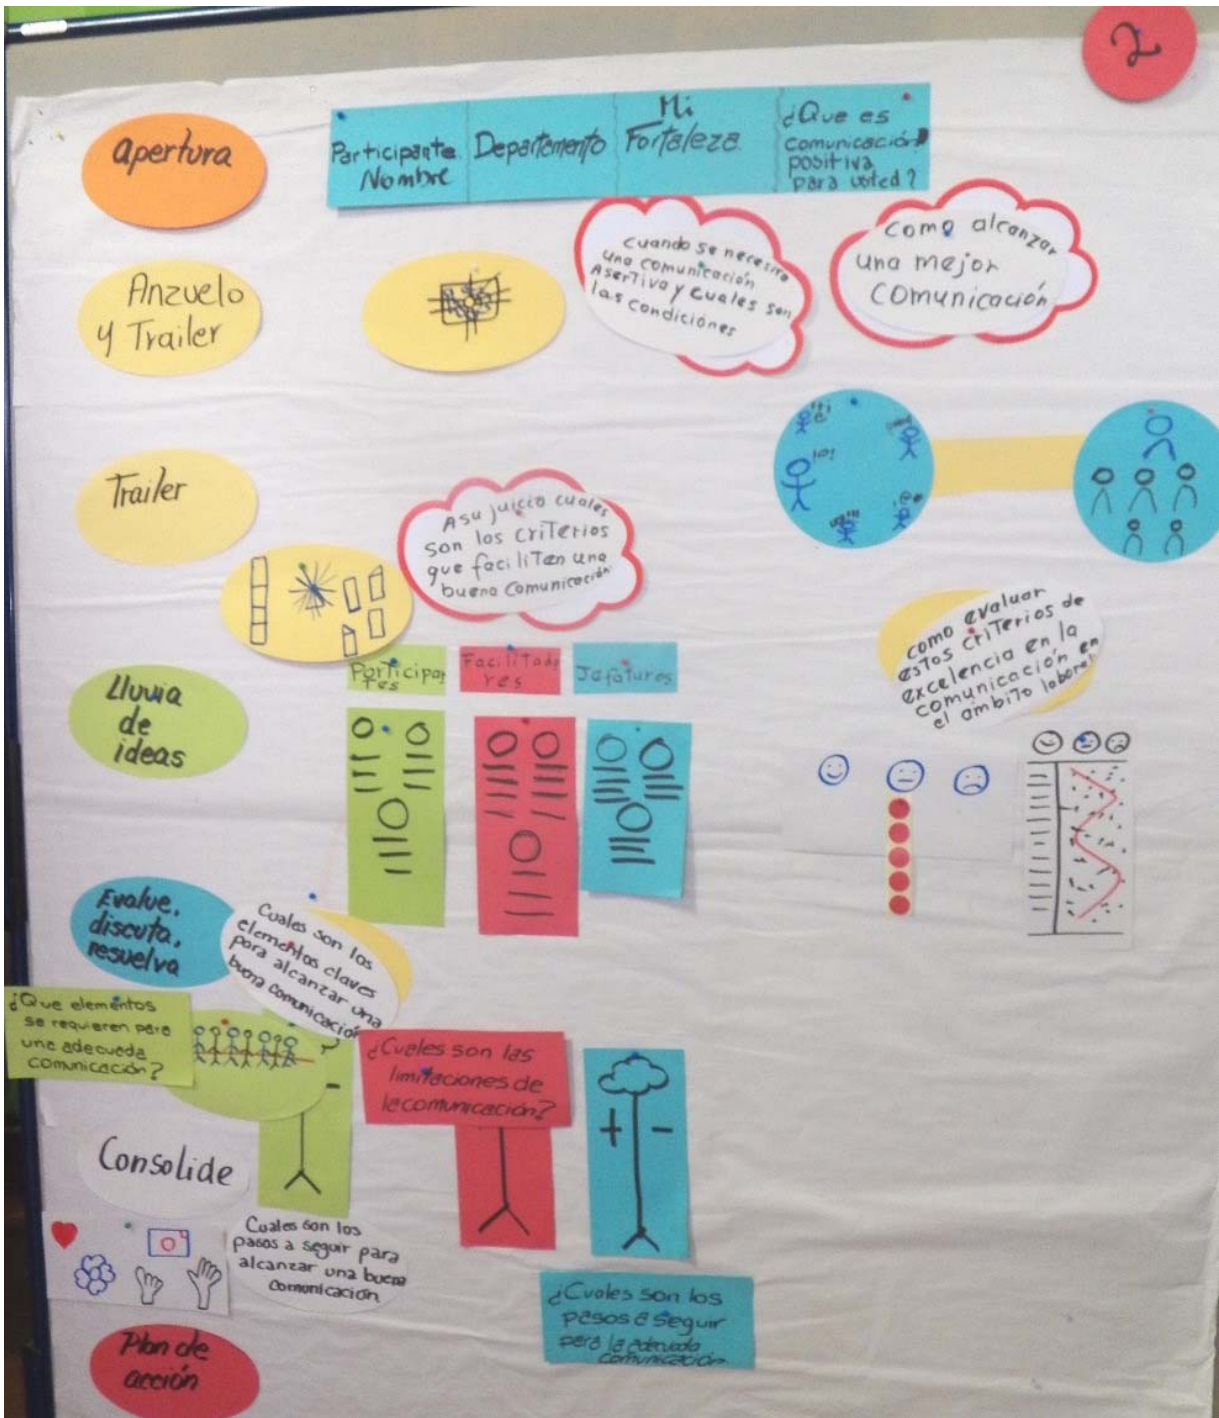 2
apertura
Participante
Nombre
Departamento
Mi
Fortaleza
¿Que es
comunicación
positiva
para usted?
Anzuelo
y Trailer
Cuando se necesita
una comunicación
Asertiva y cuales son
las condiciónes
como alcanzar
una mejor
comunicación
Trailer
A su juicio cuales
son los criterios
que faciliten una
buena comunicación
como evaluar
estos criterios de
excelencia en la
comunicación en
el ambito laboral
Participan
tes
Facilitado
res
Jefaturas
Lluvia
de
ideas
Evalue,
discuta,
resuelva
Cuales son los
elementos claves
para alcanzar una
buena comunicación
¿Que elementos
se requieren para
una adecuada
comunicación?
¿Cuales son las
limitaciones de
la comunicación?
+ -
Consolide
Cuales son los
pasos a seguir para
alcanzar una buena
comunicación
¿Cuales son los
pasos a seguir
para la adecuada
comunicación
Plan de
acción